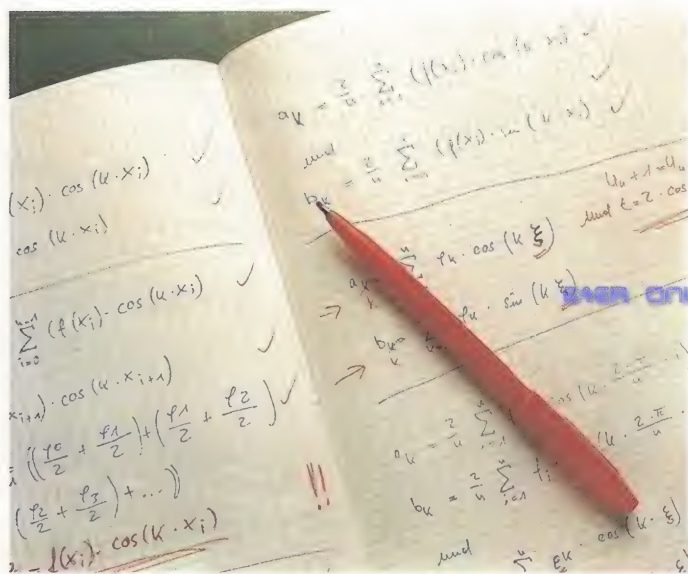 (xᵢ) · cos (k · xᵢ) ✓
cos (k · xᵢ) ✓
n-1 ∑ i=0 (f(xᵢ) · cos (k · xᵢ) ✓
xᵢ₊₁) · cos (k · xᵢ₊₁) ✓
((φ0/2 + φ1/2) + (φ1/2 + φ2/2) ✓
(φ2/2 + φ3/2) + ...))
f(xᵢ) · cos (k · xᵢ)
!!
aₖ = 2/n ∑ (f(xᵢ) · cos (k · xᵢ) ✓
und
bₖ = 2/n ∑ (f(xᵢ) · sin (k · xᵢ) ✓
und t = 2 · cos
→ aₖ n φk · cos (k ξ)
→ bₖ φk · sin (k ξ)
aₖ = 2/n n ∑ i=1 cos (k · 2·π/n · i
bₖ = 2/n n ∑ i=1 fᵢ (k · 2·π/n ·
und
n ∑ ξk · cos (k · ξ)